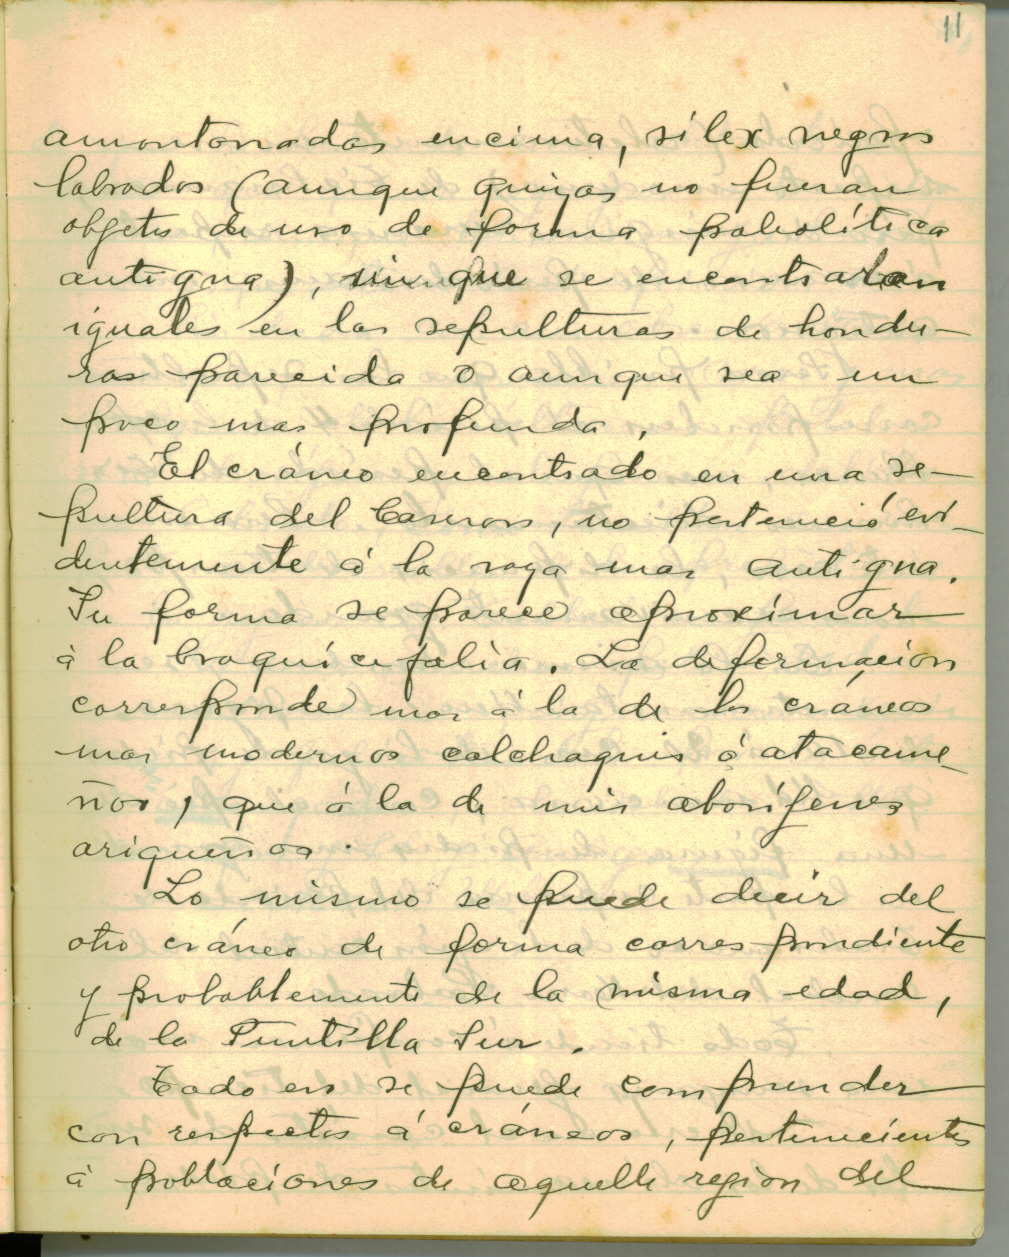 11
amontonadas encima, silex negros
labrados (aunque quizas no fueran
objetos de uso de forma paleolítica
antigua), sin que se encontraran
iguales en las sepulturas de hondu-
ras parecida o aunque sea un
poco mas profunda.
El cráneo encontrado en una se-
pultura del Caseron, no perteneció evi-
dentemente á la raza mas antigua.
Su forma se parece aproximar
á la braquicefalia. La deformacion
corresponde mas á la de los cráneos
mas modernos calchaquis ó atacame-
ños, que á la de mis aboríjenes
ariqueños.
Lo mismo se puede decir del
otro cráneo de forma correspondiente
y probablemente de la misma edad,
de la Puntilla Sur.
Todo eso se puede comprender
con respectos á cráneos, pertenecientes
á poblaciones de aquella region del